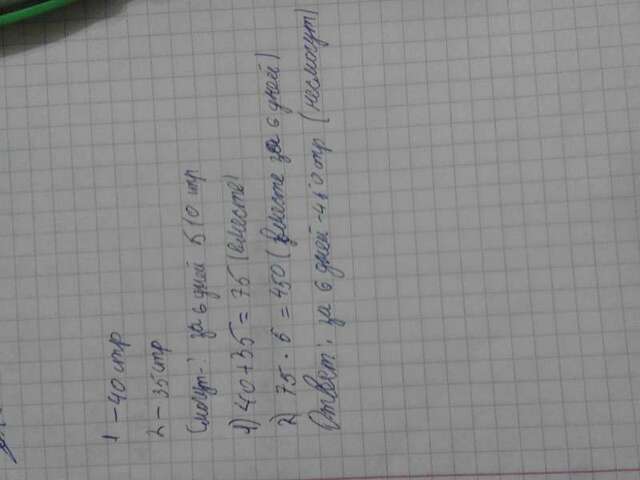 1 - 40 стр
2 - 35 стр
Смогут-: за 6 дней 510 стр
1) 40+35=75 (вместе)
2) 75 · 6 = 450 (вместе за 6 дней)
Ответ: за 6 дней - 450 стр (несмогут)